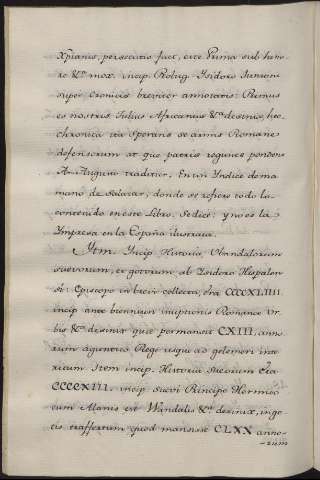 Xp̃ianis, persecutis fuct, erte Prima sub hero-
re &.ª mox. incip. Prolog. Isidori Junioris
super Cronicis breviter annotatis: Primus
es nostris Julius Africanus &.ª desinit, hec
chronica ita Sperans se armis Romane
defensorum at que patriis regunes pondons
An Augurio traditur. En un Yndice de ma
mano de Salazar, donde se refiere todo lo
contenido en este Libro. Se dice: y no es la
Ympresa en la España ilustrata.
Ytm. Incip Historia, Wandalorum
suevorum, et gotorum ab Isidoro Hispalen
si: Episcopo in brevi collecta, era CCCCXLIIII.
incip ante biennium iruptionis Romance Ur-
bis &.ª desinit que permansit CXIII, anno
rum a gunterico Rege usque ad gelemeri inte
ritum Item incip. Historia Suevorum era
CCCCXIII. incip. suevi Principe Hermeri
cum Alanis est Wandalis &.ª desinit, in go
tis trasfertum quod mansisse CLXX anno-
-rum